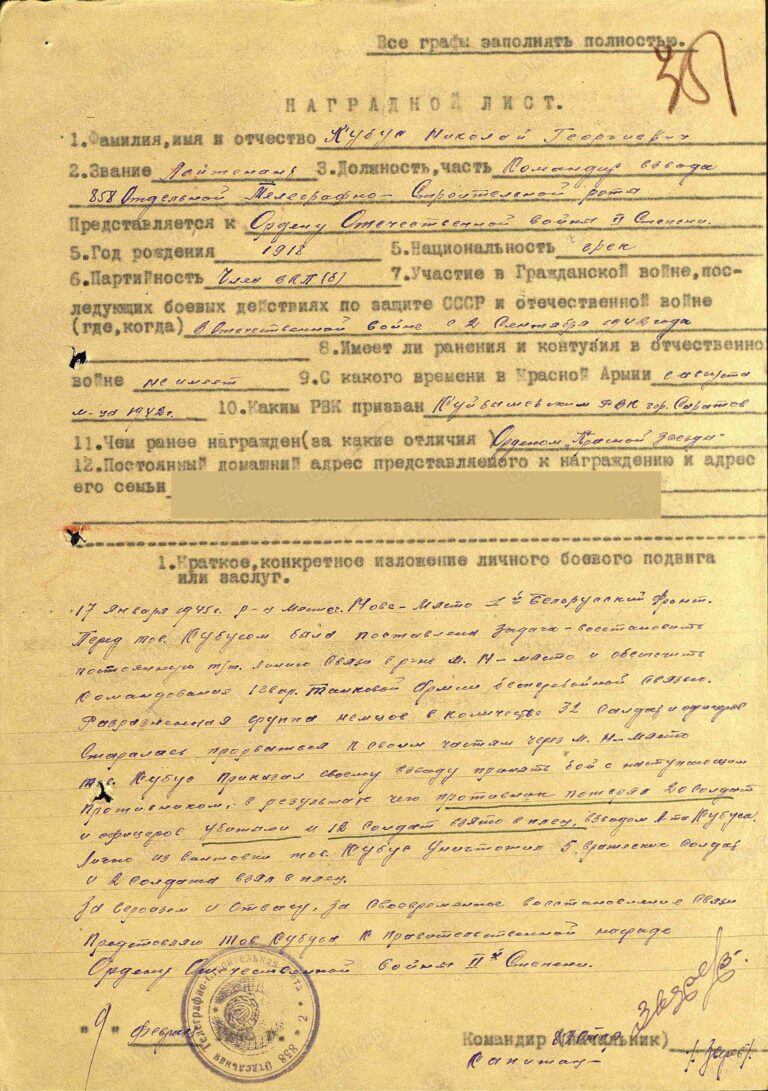 Все графы заполнять полностью.
НАГРАДНОЙ ЛИСТ.
1.Фамилия,имя и отчество Кубус Николай Георгиевич
2.Звание Лейтенант 3.Должность,часть Командир взвода
858 Отдельной Телеграфно-Строительной рота
Представляется к Ордену Отечественной войны II Степени.
5.Год рождения 1918 5.Национальность грек
6.Партийность Член ВКП(б) 7.Участие в Гражданской войне,пос-
ледующих боевых действиях по защите СССР и отечественной войне
(где,когда) В Отечественной войне с 2 Сентября 1942 года
8.Имеет ли ранения и контузия в отечественно
войне не имеет 9.С какого времени в Красной Армии с августа
м-ца 1942г. 10.Каким РВК призван Куйбышевским РВК гор. Саратов
11.Чем ранее награжден(за какие отличия) Орденом „Красной Звезды"
12.Постоянный домашний адрес представляемого к награждению и адрес
его семьи
1.Краткое,конкретное изложение личного боевого подвига
или заслуг.
17 Января 1945г. р-н местеч. Нове-Място 1й Белорусский фронт.
Перед тов. Кубусом была поставлена задача-восстановить
постоянную т/т. линию связи в р-не м. Н-място и обеспечить
Командования 1 гвар. Танковой Армии бесперебойной связью.
Разрозненная группа немцев в количестве 32 солдат и офицеров
старалась прорваться к своим частям через м. Н-Място
тов. Кубус приказал своему взводу принять бой с наступающим
противником, в результате чего противник потерял 20 солдат
и офицеров убитыми и 12 солдат взято в плен, взводом л-та Кубуса.
Лично из винтовки тов. Кубус уничтожил 5 вражеских солдат
и 2 солдата взял в плен.
За героизм и отвагу, за своевременное восстановление связи
представляю тов. Кубуса к правительственной награде
Ордену Отечественной войны IIй Степени.
"9" Феврал
Командир (Начальник)
Капитан /Зверев/
858 Отдельная Телеграфно-Строительная рота * 2 *